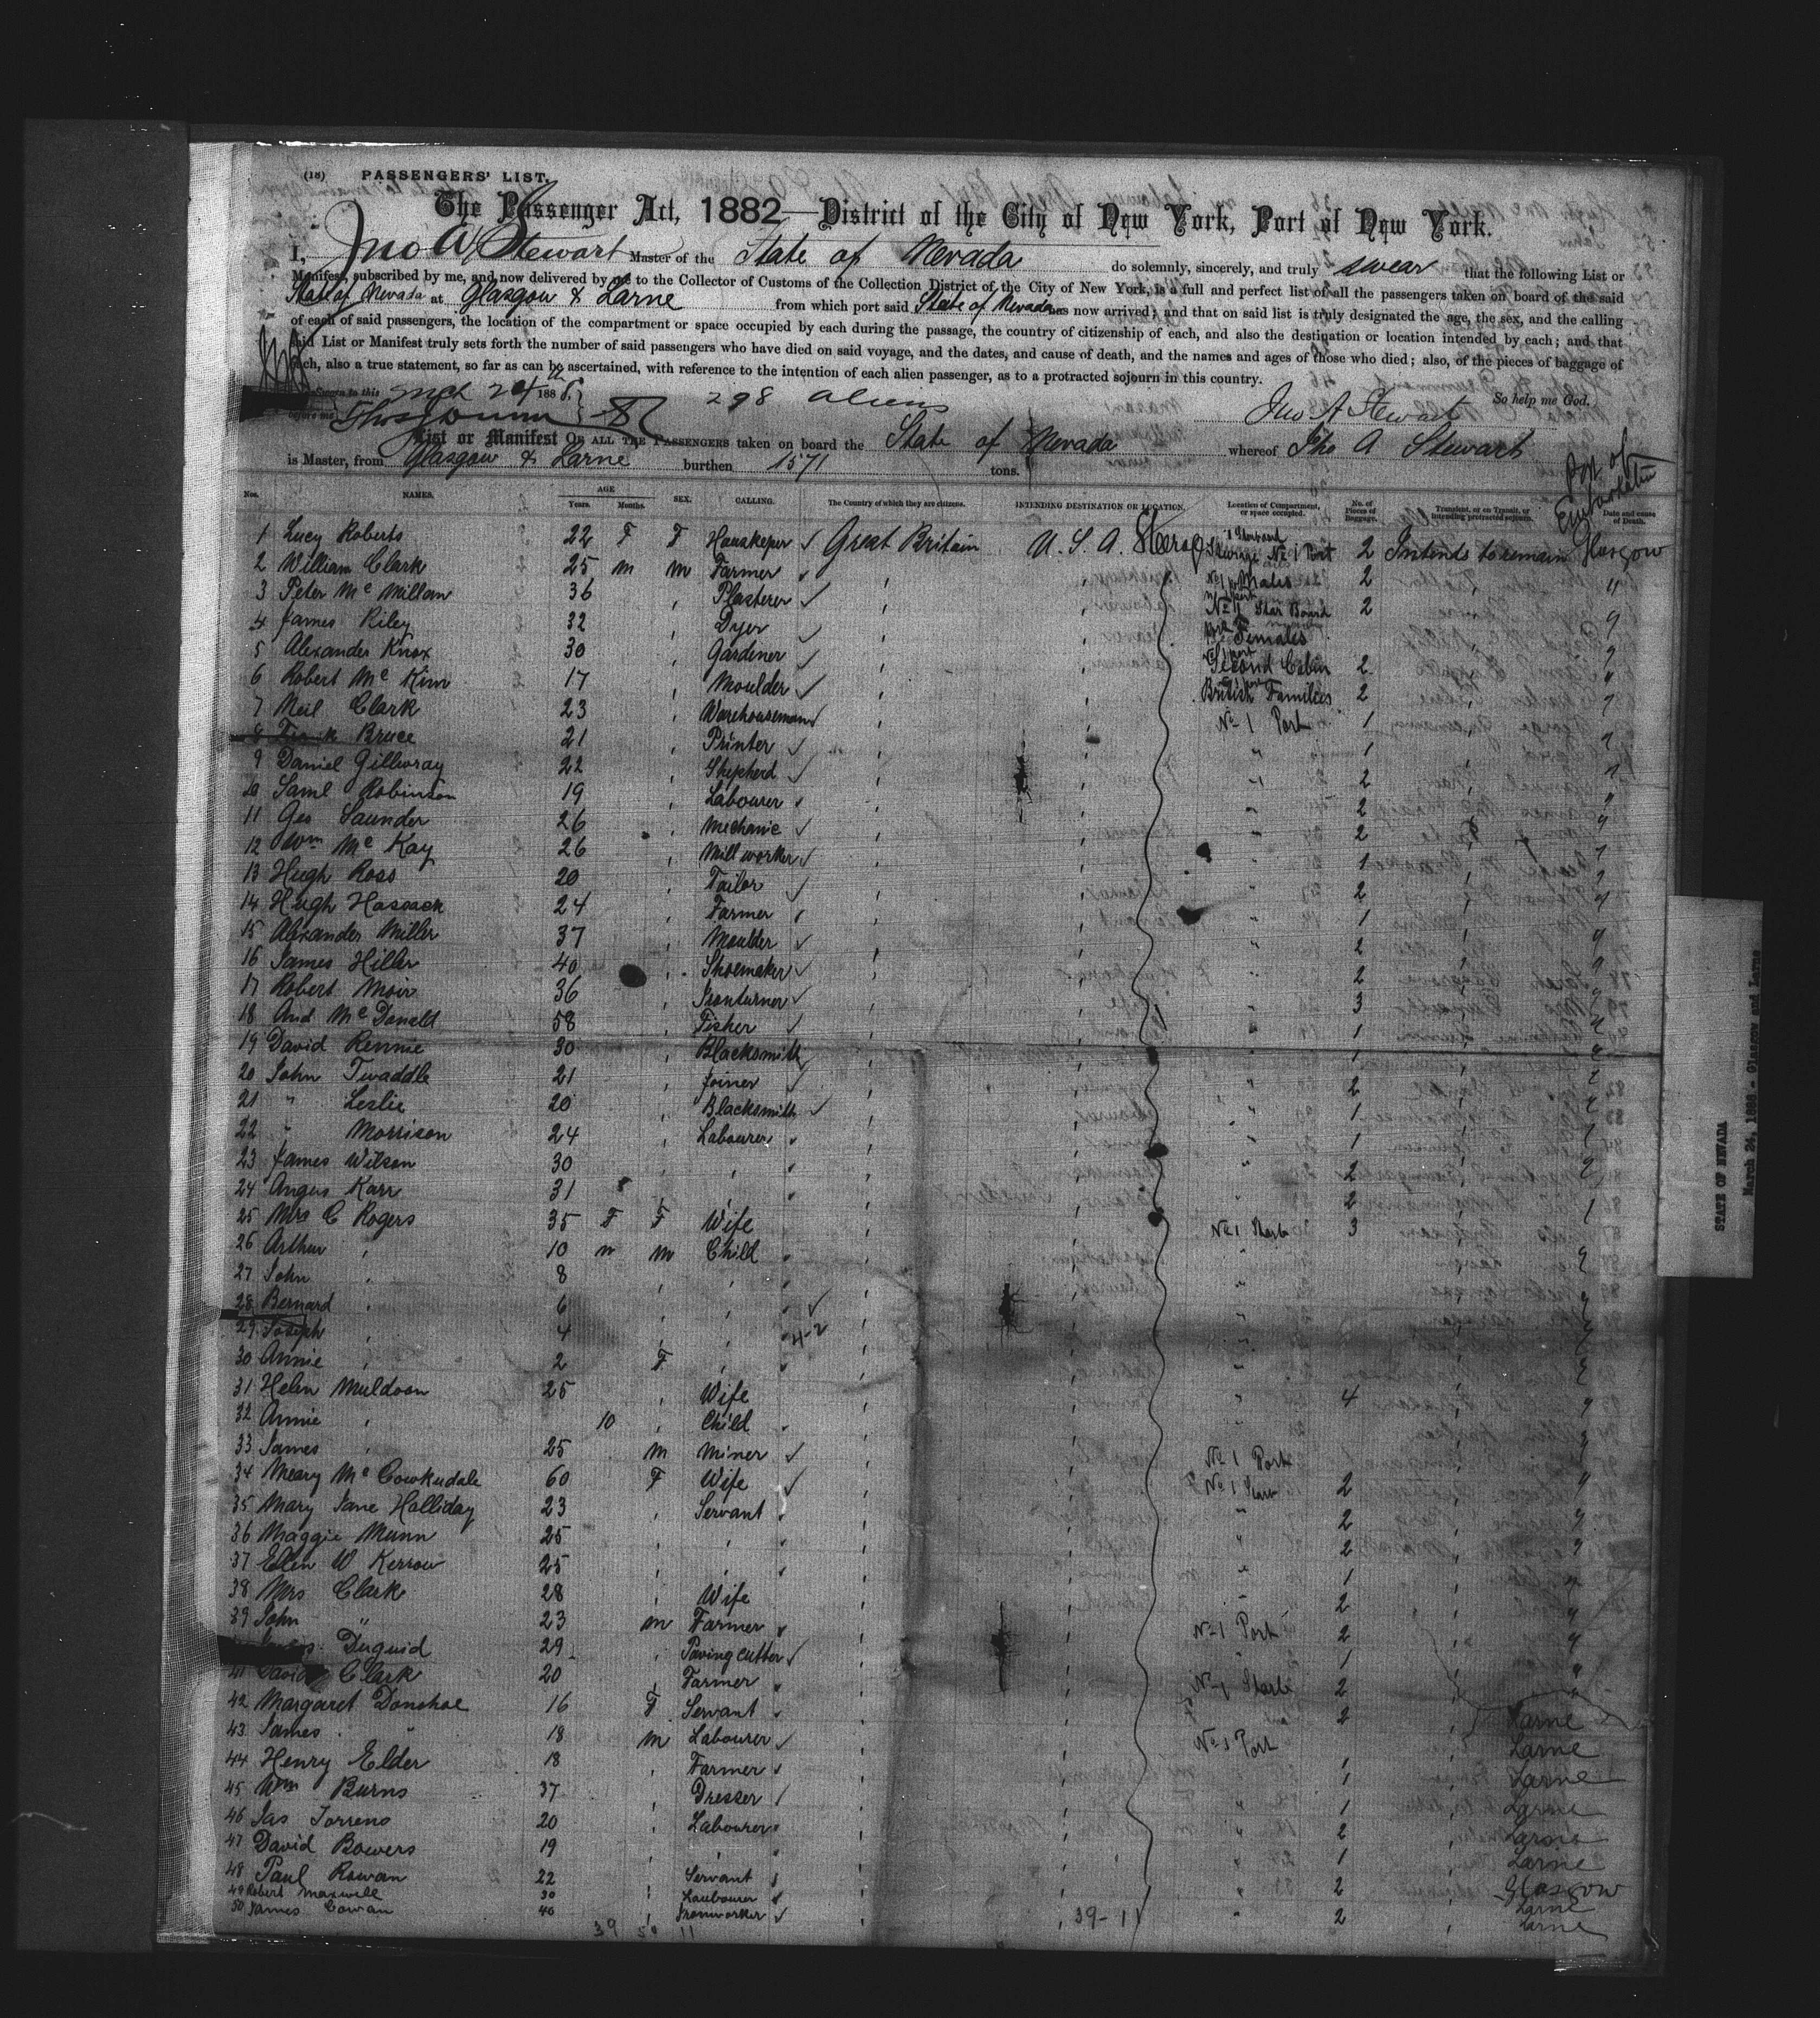 (18) PASSENGERS' LIST.
The Passenger Act, 1882—District of the City of New York, Port of New York.
I, Jno A Stewart Master of the State of Nevada do solemnly, sincerely, and truly swear that the following List or
Manifest, subscribed by me, and now delivered by me to the Collector of Customs of the Collection District of the City of New York, is a full and perfect list of all the passengers taken on board of the said
State of Nevada at Glasgow & Larne from which port said State of Nevada has now arrived; and that on said list is truly designated the age, the sex, and the calling
of each of said passengers, the location of the compartment or space occupied by each during the passage, the country of citizenship of each, and also the destination or location intended by each; and that
said List or Manifest truly sets forth the number of said passengers who have died on said voyage, and the dates, and cause of death, and the names and ages of those who died; also, of the pieces of baggage of
each, also a true statement, so far as can be ascertained, with reference to the intention of each alien passenger, as to a protracted sojourn in this country.
Sworn to this Mch 24th 1888. 298 aliens So help me God.
before me Jno A Stewart
List or Manifest OF ALL THE PASSENGERS taken on board the State of Nevada whereof Jno A Stewart
is Master, from Glasgow & Larne burthen 1571 tons.
Port of Embarkation
Nos. NAMES. AGE Years. Months. SEX. CALLING. The Country of which they are citizens. INTENDING DESTINATION OR LOCATION. Location of Compartment, or space occupied. No. of Pieces of Baggage. Transient, or in Transit, or intending protracted sojourn. Date and cause of Death.
1 Lucy Roberts 22 F F Houskeper Great Britain U. S. A. Steerage No 1 Port 2 Intends to remain Glasgow
2 William Clark 25 m m Farmer Males 2 "
3 Peter Mc Millan 36 Plasterer No 1 Star Board 2 "
4 James Riley 32 Dyer Females "
5 Alexander Knox 30 Gardener Second Cabin 2 "
6 Robert Mc Kim 17 Moulder British Families 2 "
7 Neil Clark 23 Warehouseman No 1 Port 1 "
8 Bruce 21 Printer " 1 "
9 Daniel Gillivray 22 Shepherd " 2 "
10 Saml Robinson 19 Labourer 2 "
11 Geo Saunder 26 Mechanic " 2 "
12 Wm Mc Kay 26 Mill worker 1 "
13 Hugh Ross 20 Tailor " 2 "
14 Hugh Hossack 24 Farmer " 1 "
15 Alexander Miller 37 Moulder " 2 "
16 James Hiller 40 Shoemaker " 2 "
17 Robert Moir 36 Ironturner " 3 "
18 And Mc Donald 58 Fisher " 1 "
19 David Rennie 30 Blacksmith 1 "
20 John Twaddle 21 Joiner " 2 "
21 " Leslie 20 Blacksmith " 1 "
22 " Morrison 24 Labourer " 1 "
23 James Wilson 30 " 2 "
24 Angus Karr 31 " 2 "
25 Mrs C Rogers 35 F F Wife No 1 Starb 3
26 Arthur 10 m m Child " "
27 John 8 "
28 Bernard 6 " "
29 Joseph 4 4-2 " "
30 Annie 2 F " "
31 Helen Muldoon 25 Wife " 4 "
32 Annie 10 Child "
33 James 25 m Miner No 1 Port
34 Meary Mc Cowkudale 60 F Wife No 1 Starb 2 "
35 Mary Jane Halliday 23 Servant " 2 "
36 Maggie Munn 25 " 2 "
37 Ellen W Kerrow 25 " 1 "
38 Mrs Clark 28 Wife " 2 "
39 John " 23 m Farmer No 1 Port 2 "
Duguid 29 Paving cutter 1 "
41 David Clark 20 Farmer No 1 Starb 2 "
42 Margaret Donohoe 16 F Servant 2 Larne
43 James " 18 m Labourer No 1 Port Larne
44 Henry Elder 18 Farmer 1 Larne
45 Wm Burns 37 Dresser " 1 Larne
46 Jas Torrens 20 Labourer " 2 Larne
47 David Bowers 19 " 1 Larne
48 Paul Rowan 22 Servant " 2 Glasgow
49 Robert Maxwell 30 Laubourer Larne
50 James Cowan 40 Ironworker " 2 Larne
39 50 11 39-11
STATE OF NEVADA
March 24, 1888 - Glasgow and Larne